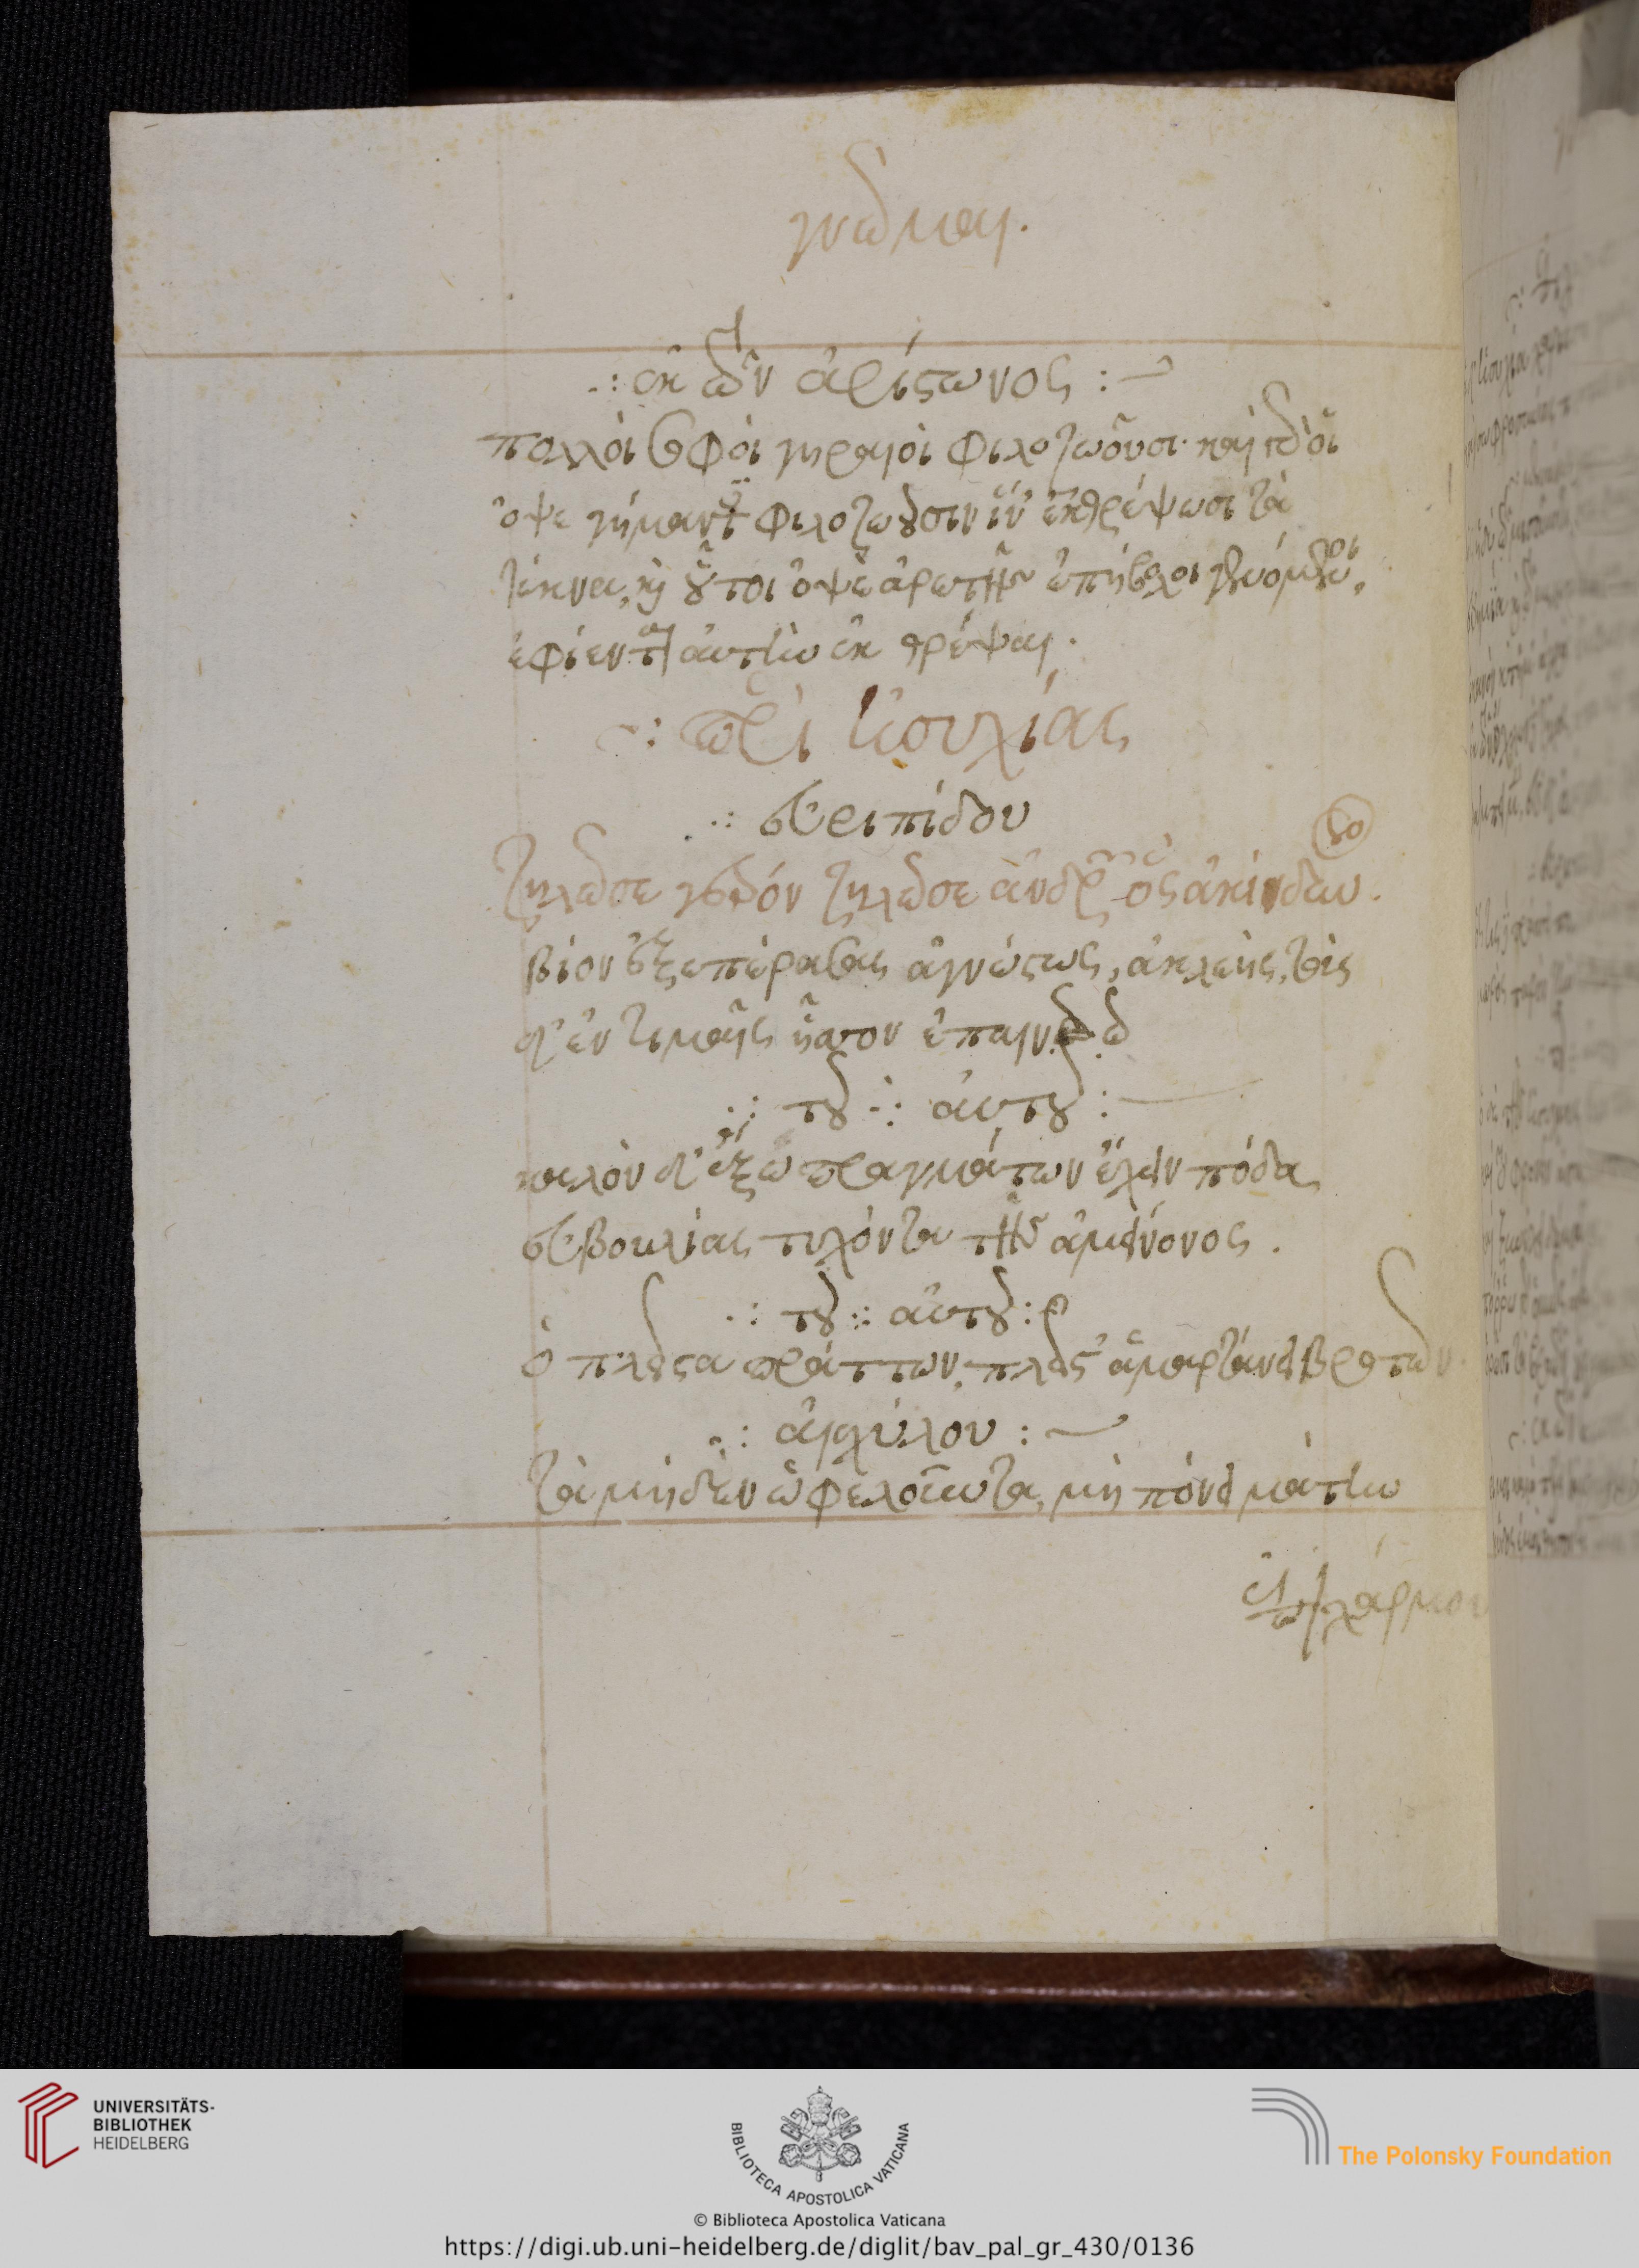 γνῶμαι.
ἐκ τῶν ἀρίστωνος :
πολλοὶ σοφοὶ γηραιοὶ φιλοζωοῦσι. καὶ γὰρ οἱ
ὀψὲ γήμαντες φιλοζωοῦσιν ἵν' ἐκθρέψωσι τὰ
τέκνα, καὶ οὗτοι ὀψὲ ἀρετῆς ἐπήβολοι γενόμενοι,
ἐφίενται αὐτὴν ἐκθρέψαι.
περὶ ἡσυχίας
εὐριπίδου
ζηλῶ σε γέρον ζηλῶ σε ἀνδρῶν ὃς ἀκίνδυνον
βίον ἐξεπέρασας ἀγνώστως, ἀκλεής, τοὺς
δ' ἐν τιμαῖς ἧττον ἐπαινῶ
τοῦ αὐτοῦ :
καλὸν δ' ἔξω πραγμάτων ἔχειν πόδα
εὐβουλίας τυχόντα τῆς ἀμείνονος.
τοῦ αὐτοῦ :
ὁ πλεῖστα πράττων, πλεῖστ' ἁμαρτάνει βροτῶν
αἰσχύλου :
τὰ μηδὲν ὠφελοῦντα, μὴ πόνει μάτην
ἐπιχάρμου
UNIVERSITÄTS-
BIBLIOTHEK
HEIDELBERG
BIBLIOTECA APOSTOLICA VATICANA
The Polonsky Foundation
© Biblioteca Apostolica Vaticana
https://digi.ub.uni-heidelberg.de/diglit/bav_pal_gr_430/0136